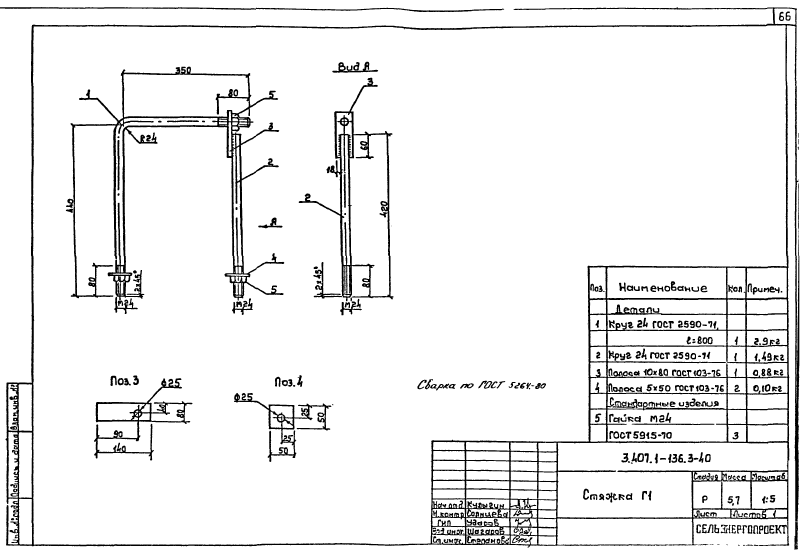 66
350
Вид А
1
80
5
3
3
R24
60
2
18
440
2
420
А
4
80
2×45°
5
2×45°
80
М24
М24
М24
Поз. 3
Поз. 4
Сварка по ГОСТ 5264-80
ф25
40
80
90
140
ф25
25
50
25
50
Поз. Наименование Кол. Примеч.
Детали
1 Круг 24 ГОСТ 2590-71,
ℓ=800 1 2,9кг
2 Круг 24 ГОСТ 2590-71 1 1,49кг
3 Полоса 10×80 ГОСТ 103-76 1 0,88кг
4 Полоса 5×50 ГОСТ 103-76 2 0,10кг
Стандартные изделия
5 Гайка М24
ГОСТ 5915-70 3
3.407.1-136.3-40
Стяжка Г1
Стадия Масса Масштаб
Р 5,7 1:5
Лист Листов 1
СЕЛЬЭНЕРГОПРОЕКТ
Нач.отд. Кулыгин
Н.контр. Солнцева
ГИП Ударов
Вед.инж. Шагаров
Ст.инж. Степанова
Инв.№подл. Подпись и дата Взам.инв.№